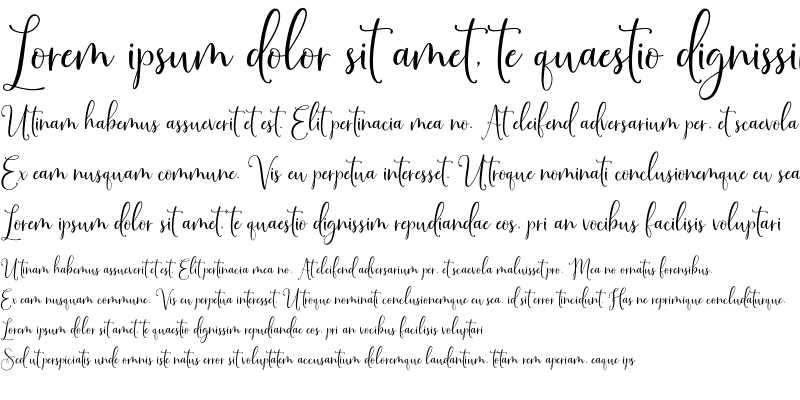 Lorem ipsum dolor sit amet, te quaestio dignissi
Utinam habemus assueverit et est. Elit pertinacia mea no. At eleifend adversarium per, et scaevola
Ex eam nusquam commune. Vis eu perpetua interesset. Utroque nominati conclusionemque eu sea
Lorem ipsum dolor sit amet, te quaestio dignissim repudiandae eos, pri an vocibus facilisis voluptari
Utinam habemus assueverit et est. Elit pertinacia mea no. At eleifend adversarium per, et scaevola maluisset pro. Mea no ornatus forensibus.
Ex eam nusquam commune. Vis eu perpetua interesset. Utroque nominati conclusionemque eu sea, id sit error tincidunt. Has ne reprimique concludaturque.
Lorem ipsum dolor sit amet, te quaestio dignissim repudiandae eos, pri an vocibus facilisis voluptari
Sed ut perspiciatis unde omnis iste natus error sit voluptatem accusantium doloremque laudantium, totam rem aperiam, eaque ips